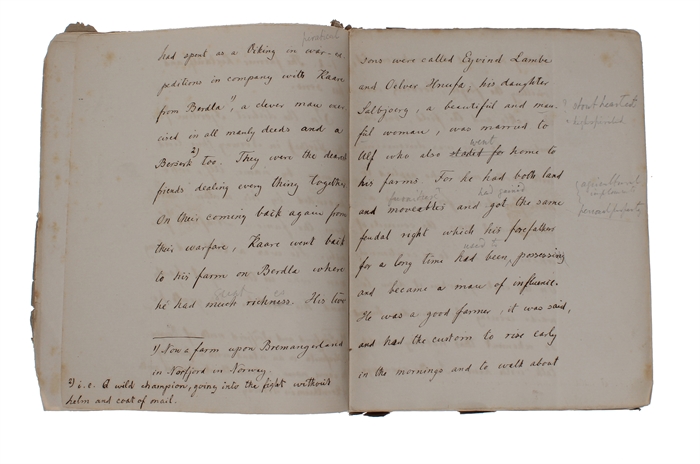 had spent as a Viking on war-ex
peditions in company with Kaare
from Berdla 1), a clever man exer
cised in all manly deeds and a
Berserk 2) too. They were the dearest
friends dealing every thing together
On their coming back again from
their warfare, Kaare went back
to his farm on Berdla where
he had much richness. His two
1) Now a farm upon Bremangerland
in Norfjord in Norway.
2) i.e. A wild champion, going into the fight without
helm and coat of mail.
sons were called Eyvind Lambe
and Oelver Hnufa; his daughter
Salbjoerg, a beautiful and man
ful woman, was married to
stout hearted
high spirited
went
Ulf who also stadet for home to
his farms. For he had both land
agricultural
implements
furniture had gained
and moveables and got the same
personal property
feudal right which his forefathers
used to
for a long time had been possessing
and became a man of influence.
He was a good farmer, it was said,
and had the custom to rise early
in the mornings and to walk about